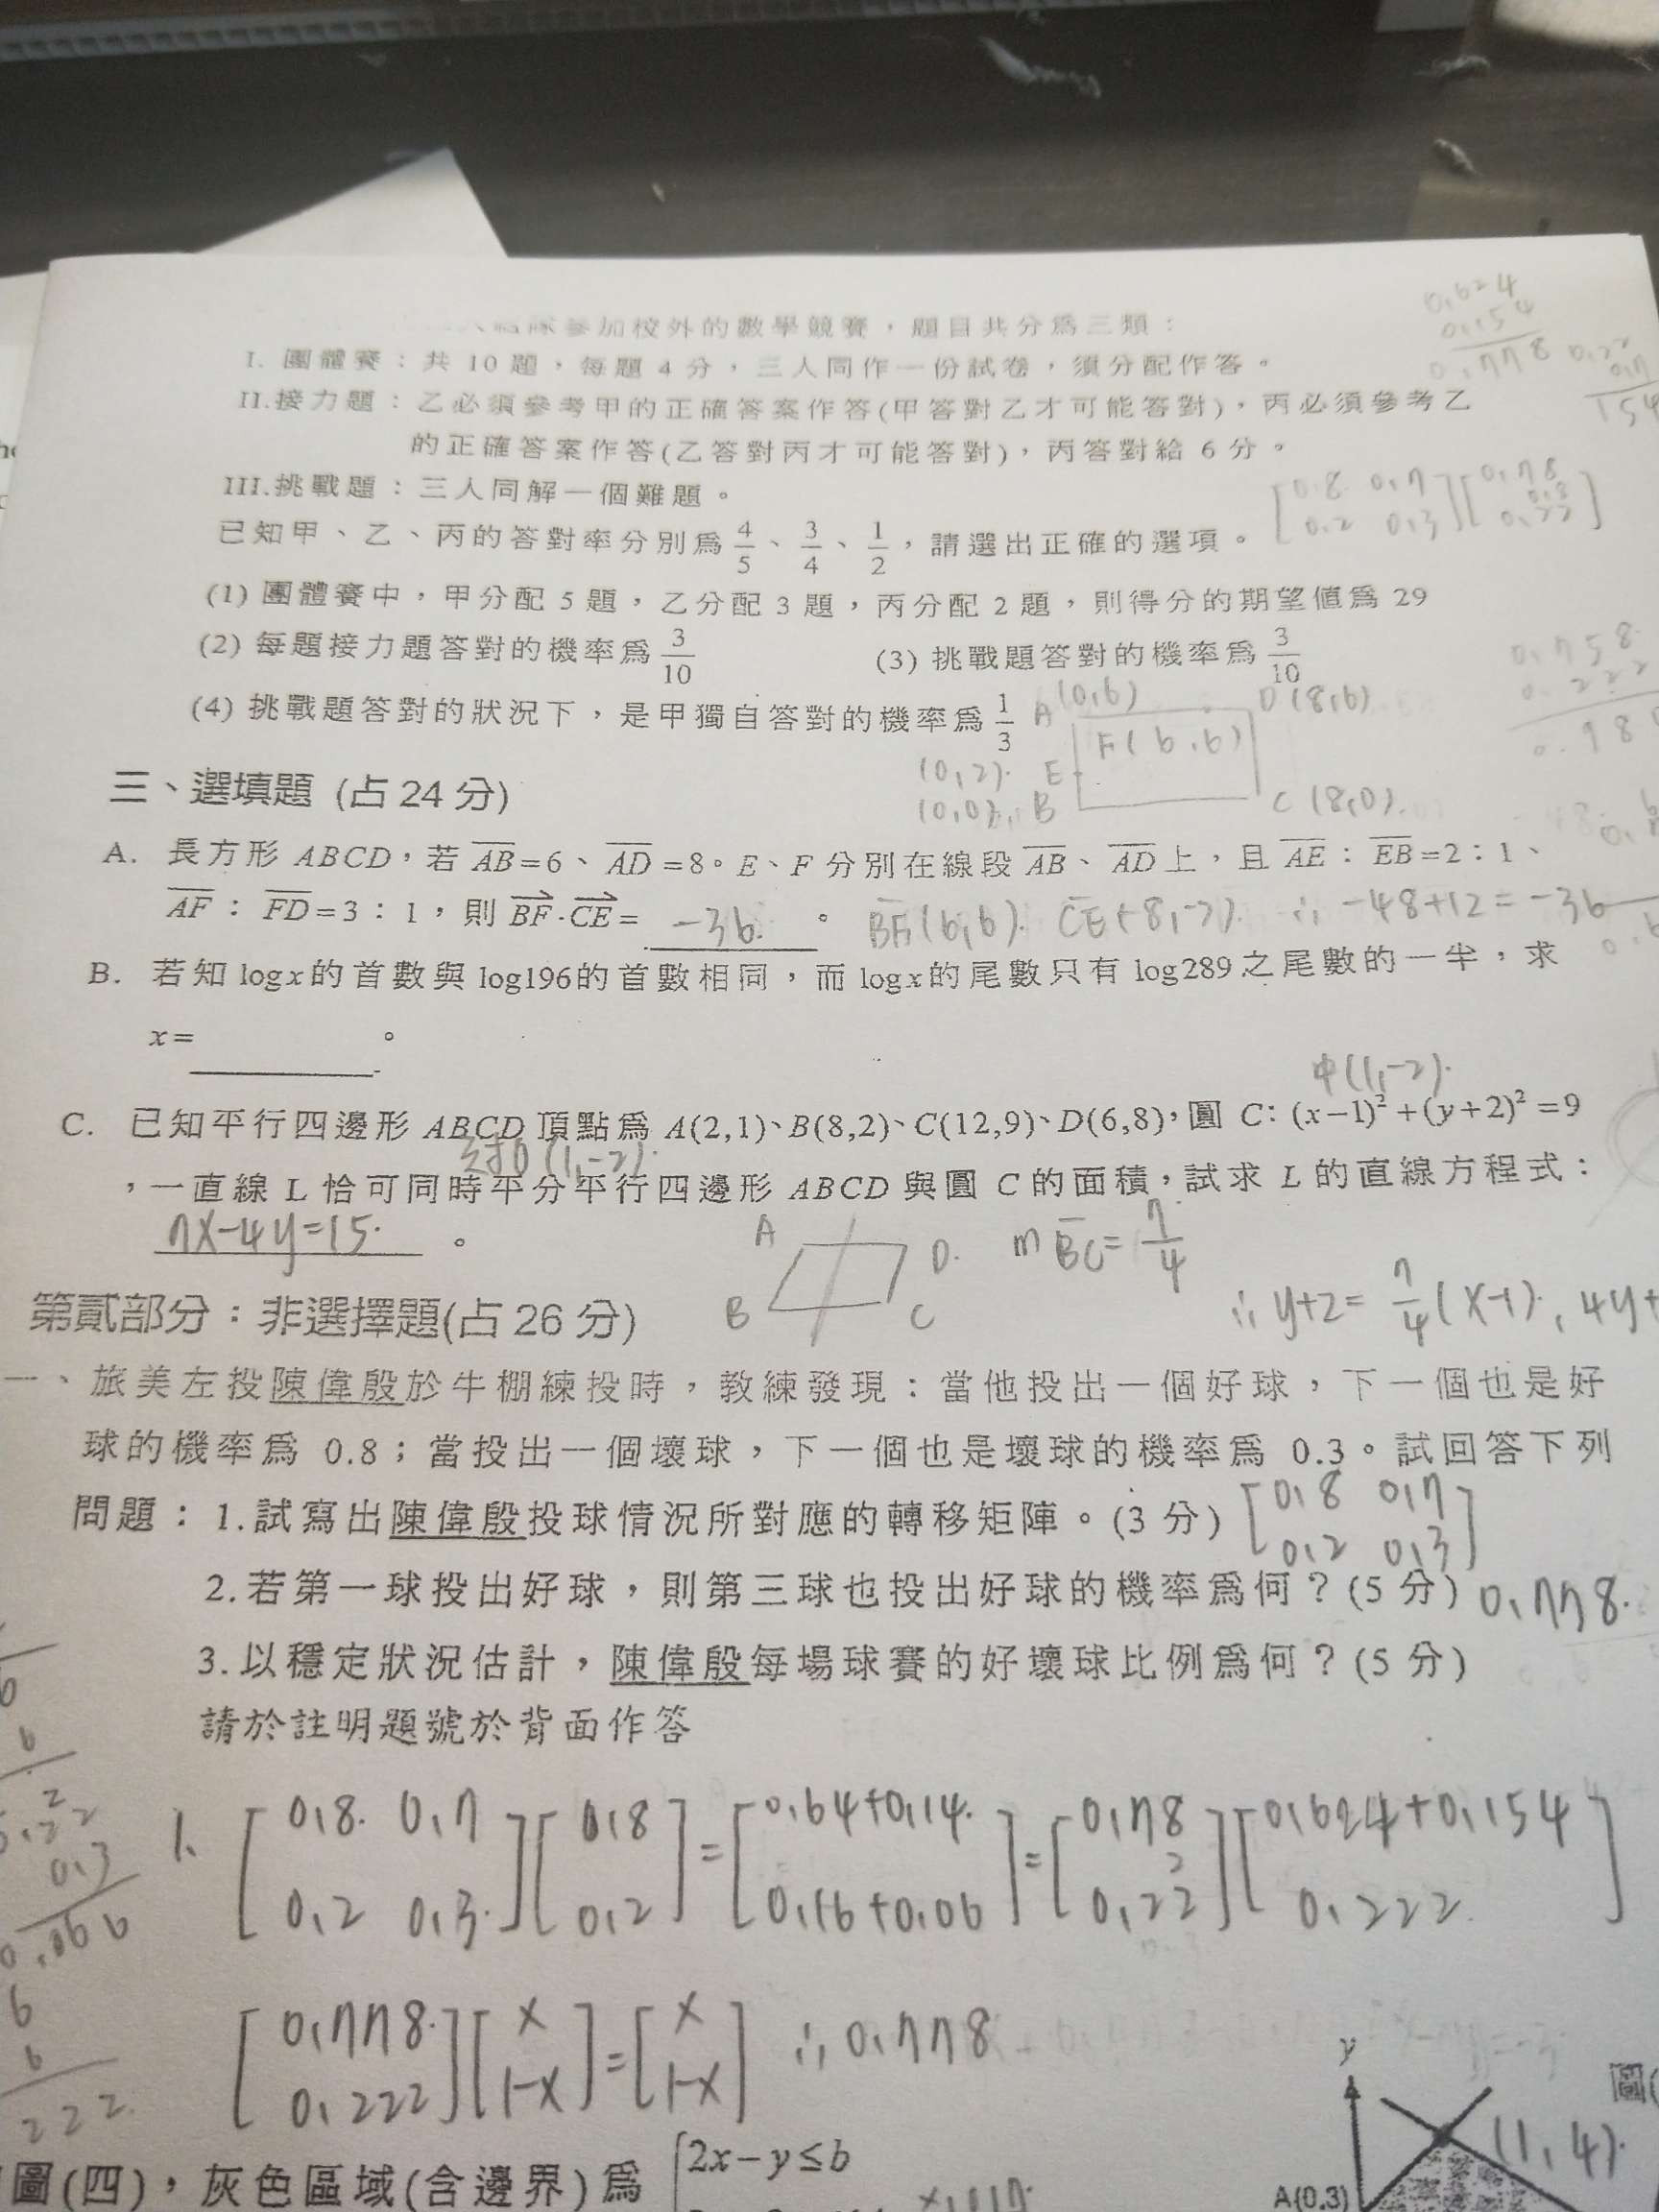 參加校外的數學競賽，題目共分為三類：
I. 團體賽：共 10 題，每題 4 分，三人同作一份試卷，須分配作答。
II.接力題：乙必須參考甲的正確答案作答(甲答對乙才可能答對)，丙必須參考乙
的正確答案作答(乙答對丙才可能答對)，丙答對給 6 分。
III.挑戰題：三人同解一個難題。
已知甲、乙、丙的答對率分別為 4/5、3/4、1/2，請選出正確的選項。
(1) 團體賽中，甲分配 5 題，乙分配 3 題，丙分配 2 題，則得分的期望值為 29
(2) 每題接力題答對的機率為 3/10 (3) 挑戰題答對的機率為 3/10
(4) 挑戰題答對的狀況下，是甲獨自答對的機率為 1/3
A (0,6) D (8,6)
F(6,6)
(0,2) E
(0,0) B C (8,0)
三、選填題 (占 24 分)
A. 長方形 ABCD，若 AB=6、AD=8。E、F 分別在線段 AB、AD 上，且 AE：EB=2：1、
AF：FD=3：1，則 BF·CE= -36 。 BF(6,6). CE(-8,-2). ∴ -48+12=-36
B. 若知 logx 的首數與 log196 的首數相同，而 logx 的尾數只有 log289 之尾數的一半，求
x= 。
中(1,-2).
C. 已知平行四邊形 ABCD 頂點為 A(2,1)、B(8,2)、C(12,9)、D(6,8)，圓 C: (x−1)²+(y+2)²=9
(1,-2).
，一直線 L 恰可同時平分平行四邊形 ABCD 與圓 C 的面積，試求 L 的直線方程式：
7x-4y=15. 。 A D. B C m BC = 7/4
∴ y+2= 7/4 (x-1), 4y+
第貳部分：非選擇題(占 26 分)
一、旅美左投陳偉殷於牛棚練投時，教練發現：當他投出一個好球，下一個也是好
球的機率為 0.8；當投出一個壞球，下一個也是壞球的機率為 0.3。試回答下列
問題：1.試寫出陳偉殷投球情況所對應的轉移矩陣。(3 分) [0.8 0.7
0.2 0.3]
2.若第一球投出好球，則第三球也投出好球的機率為何？(5 分) 0.778.
3.以穩定狀況估計，陳偉殷每場球賽的好壞球比例為何？(5 分)
請於註明題號於背面作答
1. [0.8 0.7] [0.8] = [0.64+0.14] = [0.78] [0.624+0.154]
[0.2 0.3] [0.2] [0.16+0.06] [0.22] [0.222]
[0.778] [x] = [x] ∴ 0.778
[0.222] [1-x] [1-x]
圖(四)，灰色區域(含邊界)為 2x−y≤b
y
(1,4).
A(0,3)